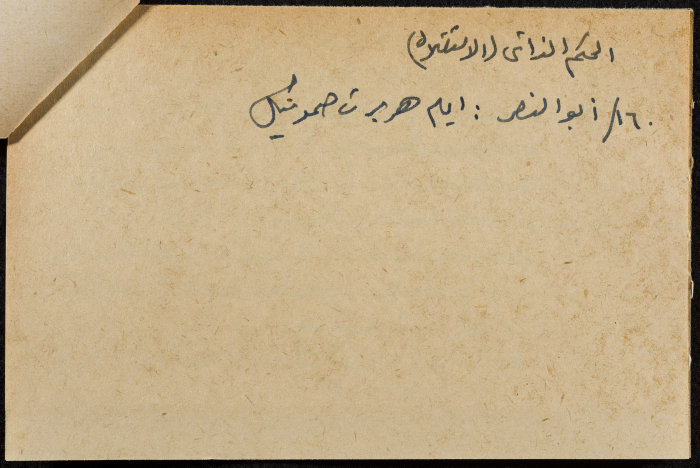 الحكم الذاتي (الاستقلال)
١٦٠/ أبو النصر : ايام هربرت صموئيل